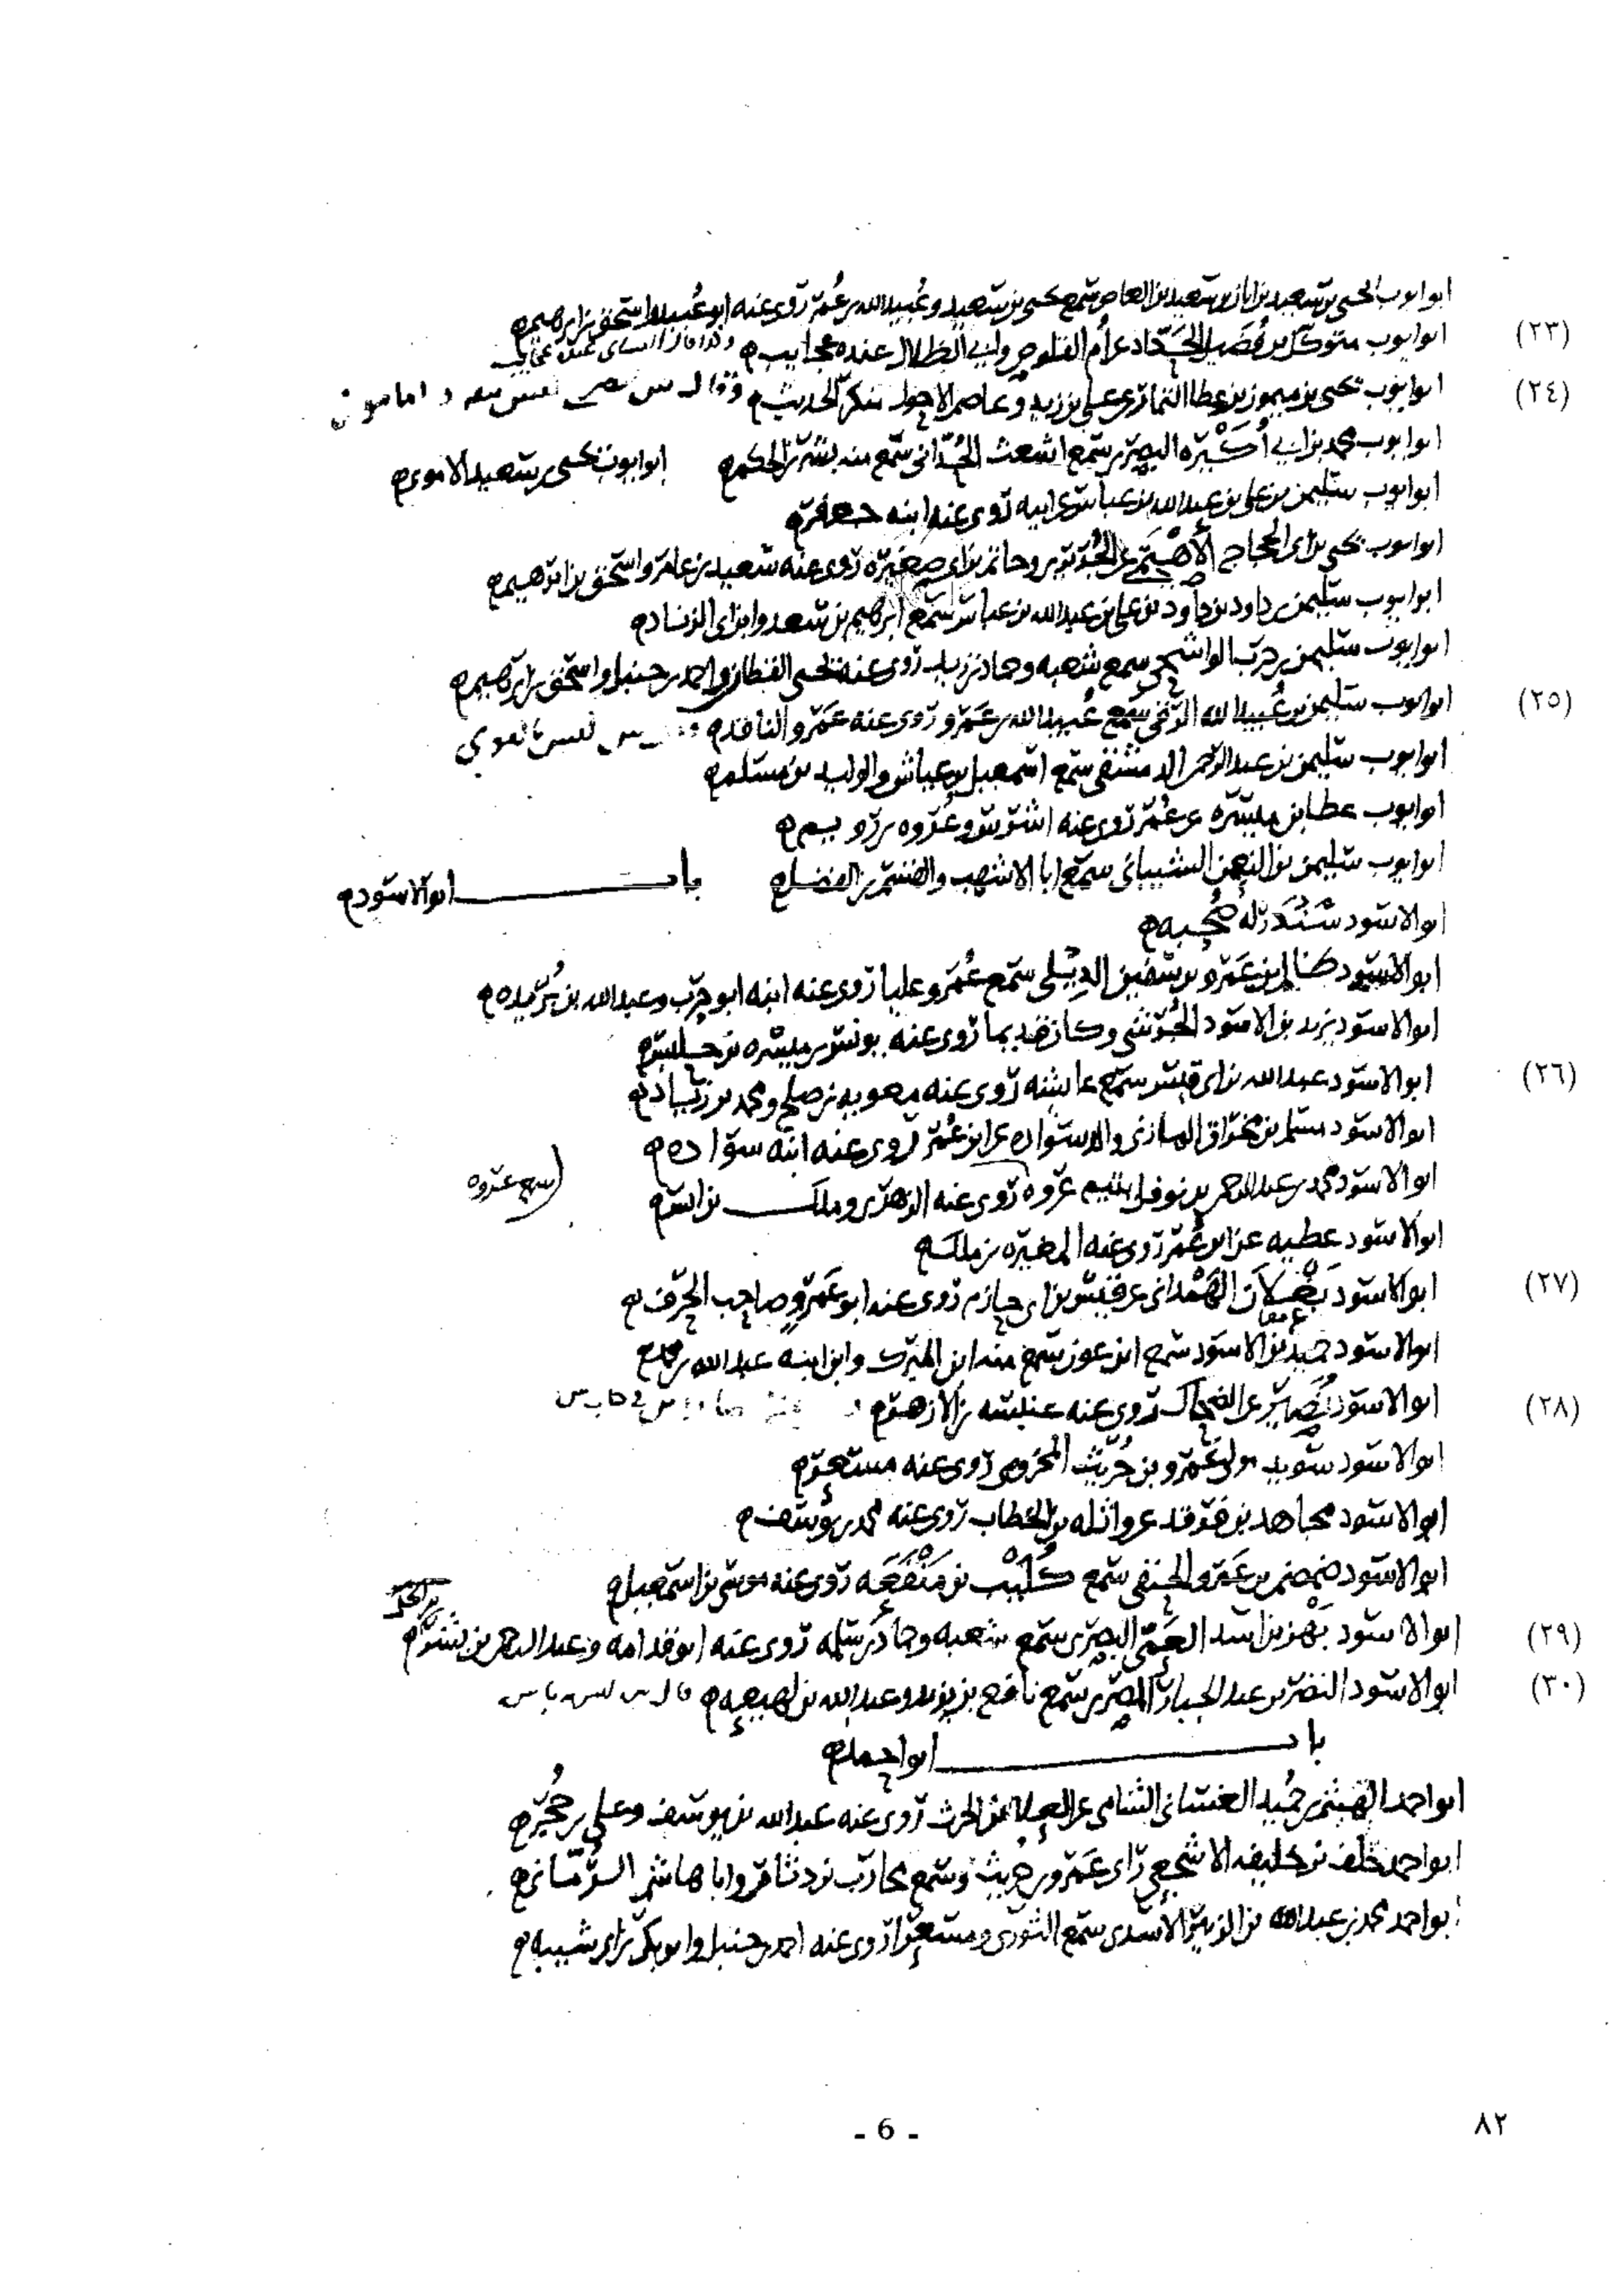 ابو ايوب يحيى بن سعيد بن ابان بن سعيد بن العاص سمع يحيى بن سعيد وعُبيد الله بن عُمر روى عنه ابو عُبيد واسحق بن ابرهيم
(٢٣) ابو ايوب متوكل بن فُضَيل الحَدّاد عن أم القلوص وابي الظلال عنده عجايب
(٢٤) ابو ايوب يحيى بن ميمون بن عطا التمار عن علي بن زيد وعاصم الاحول منكر الحديث
ابو ايوب محمد بن ابي أكبَره البصري سمع اشعث الحُدّاني سمع منه بشر بن الحكم ابو ايوب يحيى بن سعيد الاموي
ابو ايوب سليمن بن علي بن عبد الله بن عباس عن ابيه روى عنه ابنه جعفر
ابو ايوب يحيى بن ابي الحجاج الأهتمي عن الجُريري وحاتم بن ابي صغيره روى عنه سعيد بن عامر واسحق بن ابرهيم
ابو ايوب سليمن بن داود بن داود بن علي بن عبد الله بن عباس سمع ابرهيم بن سعد وابن ابي الزناد
ابو ايوب سليمن بن حرب الواشحي سمع شعبه وحماد بن زيد روى عنه يحيى القطان واحمد بن حنبل واسحق بن ابرهيم
(٢٥) ابو ايوب سليمن بن عُبيد الله الرقي سمع عُبيد الله بن عَمرو روى عنه عَمرو الناقد ليس بالقوي
ابو ايوب سليمن بن عبد الرحمن الدمشقي سمع اسمعيل بن عياش والوليد بن مسلم
ابو ايوب عطا بن ميسره عن عُمر روى عنه اشرس وعُروه بن رويم
ابو ايوب سليمن بن النعمن الشيباني سمع ابا الاشهب والقسم بن الفضل باب ابو الاسود
ابو الاسود سَندَر له صُحبه
ابو الاسود ظالم بن عَمرو بن سفين الدِيلي سمع عُمَر وعليا روى عنه ابنه ابو حرب وعبد الله بن بُريده
ابو الاسود يزيد بن الاسود الجُرشي وكان قديما روى عنه يونس بن ميسره بن حلبس
(٢٦) ابو الاسود عبد الله بن ابي قيس سمع عايشه روى عنه معويه بن صلح ومحمد بن زياد
ابو الاسود مسلم بن مخراق المازني والد سواده عن ابن عُمر روى عنه ابنه سواده
ابو الاسود محمد بن عبد الرحمن بن نوفل يتيم عروه روى عنه الزهري وملك بن انس سمع عروه
ابو الاسود عطيه عن ابن عُمر روى عنه المغيره بن ملك
(٢٧) ابو الاسود الهَمْداني عن قيس بن ابي حازم روى عنه ابو عَمرو صاحب الحرف
ابو الاسود حميد بن الاسود سمع ابن عون سمع منه ابن المبرك وابن ابنه عبد الله بن محمد
(٢٨) ابو الاسود نُصَير عن الضحاك روى عنه عنبسه بن الازهر
ابو الاسود سويد مولى عَمرو بن حُريث المخزومي روى عنه مسعر
ابو الاسود مجاهد بن فرقد عن واثله بن الخطاب روى عنه محمد بن يوسف
ابو الاسود ضمضم بن عَمرو الحنفي سمع كُلَيْب بن مَنْفَعَه روى عنه موسى بن اسمعيل
(٢٩) ابو الاسود بَهْز بن اسد العَمّي البصري سمع شعبه وحماد بن سلمه روى عنه ابو قدامه وعبد الرحمن بن بشر بن الحكم
(٣٠) ابو الاسود النضر بن عبد الجبار المصري سمع نافع بن يزيد وعبد الله بن لهيعه قال س ليس به باس
باب ابو احمد
ابو احمد الهيثم بن حُميد الغساني الشامي عن العلا بن الحرث روى عنه عبد الله بن يوسف وعلي بن حُجر
ابو احمد خلف بن خليفه الاشجعي راى عَمرو بن حريث وسمع محارب بن دثار وابا هاشم الرُّمّاني
ابو احمد محمد بن عبد الله بن الزبير الاسدي سمع الثوري ومسعرا روى عنه احمد بن حنبل وابو بكر بن ابي شيبه
- 6 -
٨٢